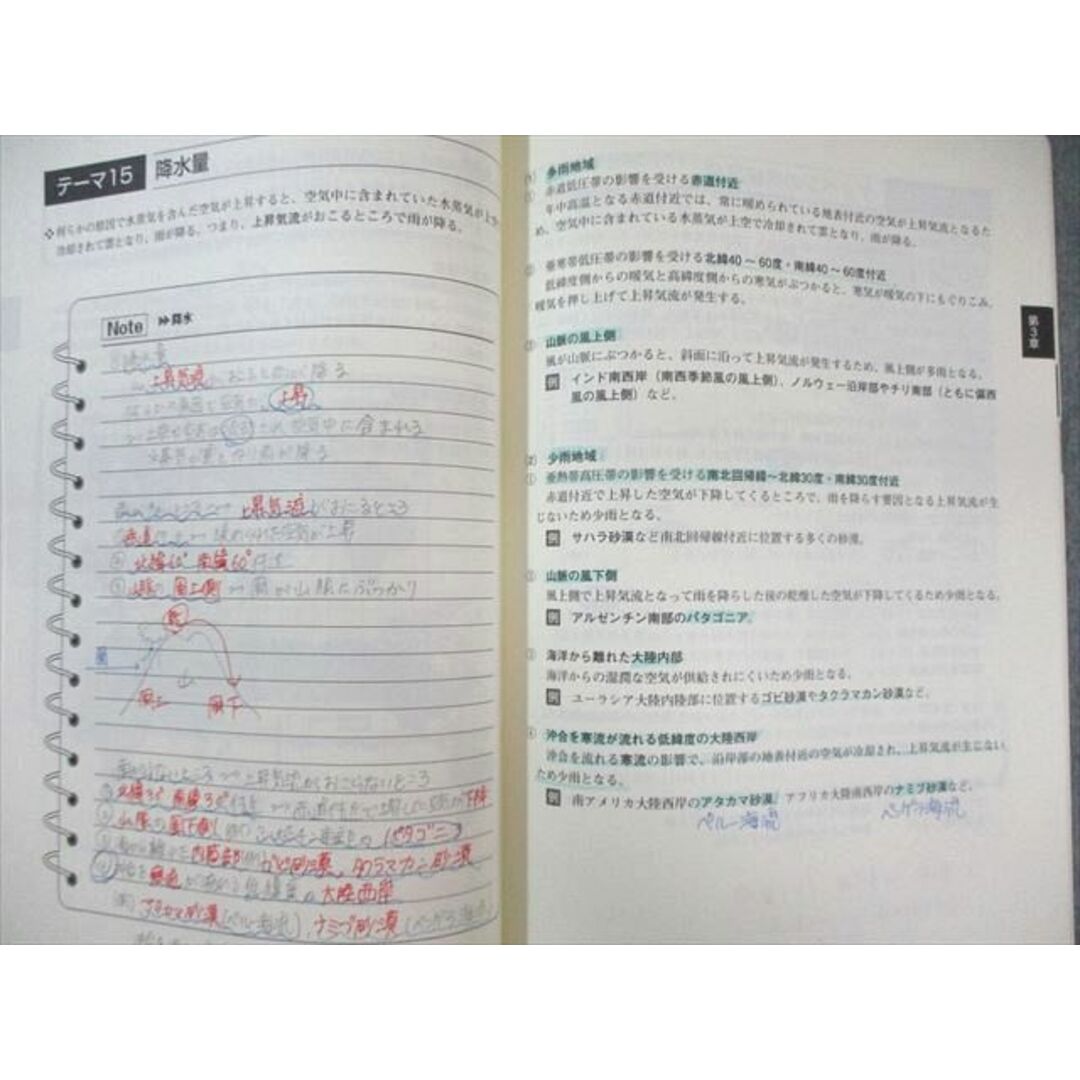 テーマ15 降水量
❖何らかの原因で水蒸気を含んだ空気が上昇すると、空気中に含まれていた水蒸気が上空
冷却されて雲となり、雨が降る。つまり、上昇気流がおこるところで雨が降る。
Note ≫降水
降水量
上昇気流 がおこるところ 降る
上昇
空気中に含まれる
上昇気流 がおこるところ
赤道 暖められた空気が上昇
北緯60° 南緯60° 付近
山脈の風上側 風が山脈にぶつかり
雲
風
山
風上
風下
上昇気流がおこらないところ
北緯30° 南緯30° 付近 下降
山脈の風下側 (パタゴニア)
内陸部 ゴビ砂漠、タクラマカン砂漠
寒流が流れる低緯度の大陸西岸
アタカマ砂漠(ペルー海流)、ナミブ砂漠(ベンゲラ海流)
(1) 多雨地域
① 赤道低圧帯の影響を受ける赤道付近
年中高温となる赤道付近では、常に暖められている地表付近の空気が上昇気流となるた
め、空気中に含まれている水蒸気が上空で冷却されて雲となり、雨が降る。
② 亜寒帯低圧帯の影響を受ける北緯40～60度・南緯40～60度付近
低緯度側からの暖気と高緯度側からの寒気がぶつかると、寒気が暖気の下にもぐりこみ、
暖気を押し上げて上昇気流が発生する。
③ 山脈の風上側
風が山脈にぶつかると、斜面に沿って上昇気流が発生するため、風上側が多雨となる。
例 インド南西岸（南西季節風の風上側）、ノルウェー沿岸部やチリ南部（ともに偏西
風の風上側）など。
第3章
(2) 少雨地域
① 亜熱帯高圧帯の影響を受ける南北回帰線～北緯30度・南緯30度付近
赤道付近で上昇した空気が下降してくるところで、雨を降らす要因となる上昇気流が生
じないため少雨となる。
例 サハラ砂漠など南北回帰線付近に位置する多くの砂漠。
② 山脈の風下側
風上側で上昇気流となって雨を降らした後の乾燥した空気が下降してくるため少雨となる。
例 アルゼンチン南部のパタゴニア。
③ 海洋から離れた大陸内部
海洋からの湿潤な空気が供給されにくいため少雨となる。
例 ユーラシア大陸内陸部に位置するゴビ砂漠やタクラマカン砂漠など。
④ 沖合を寒流が流れる低緯度の大陸西岸
沖合を流れる寒流の影響で、沿岸部の地表付近の空気が冷却され、上昇気流が生じない
ため少雨となる。
例 南アメリカ大陸西岸のアタカマ砂漠、アフリカ大陸南西岸のナミブ砂漠など。
ペルー海流 ベンゲラ海流